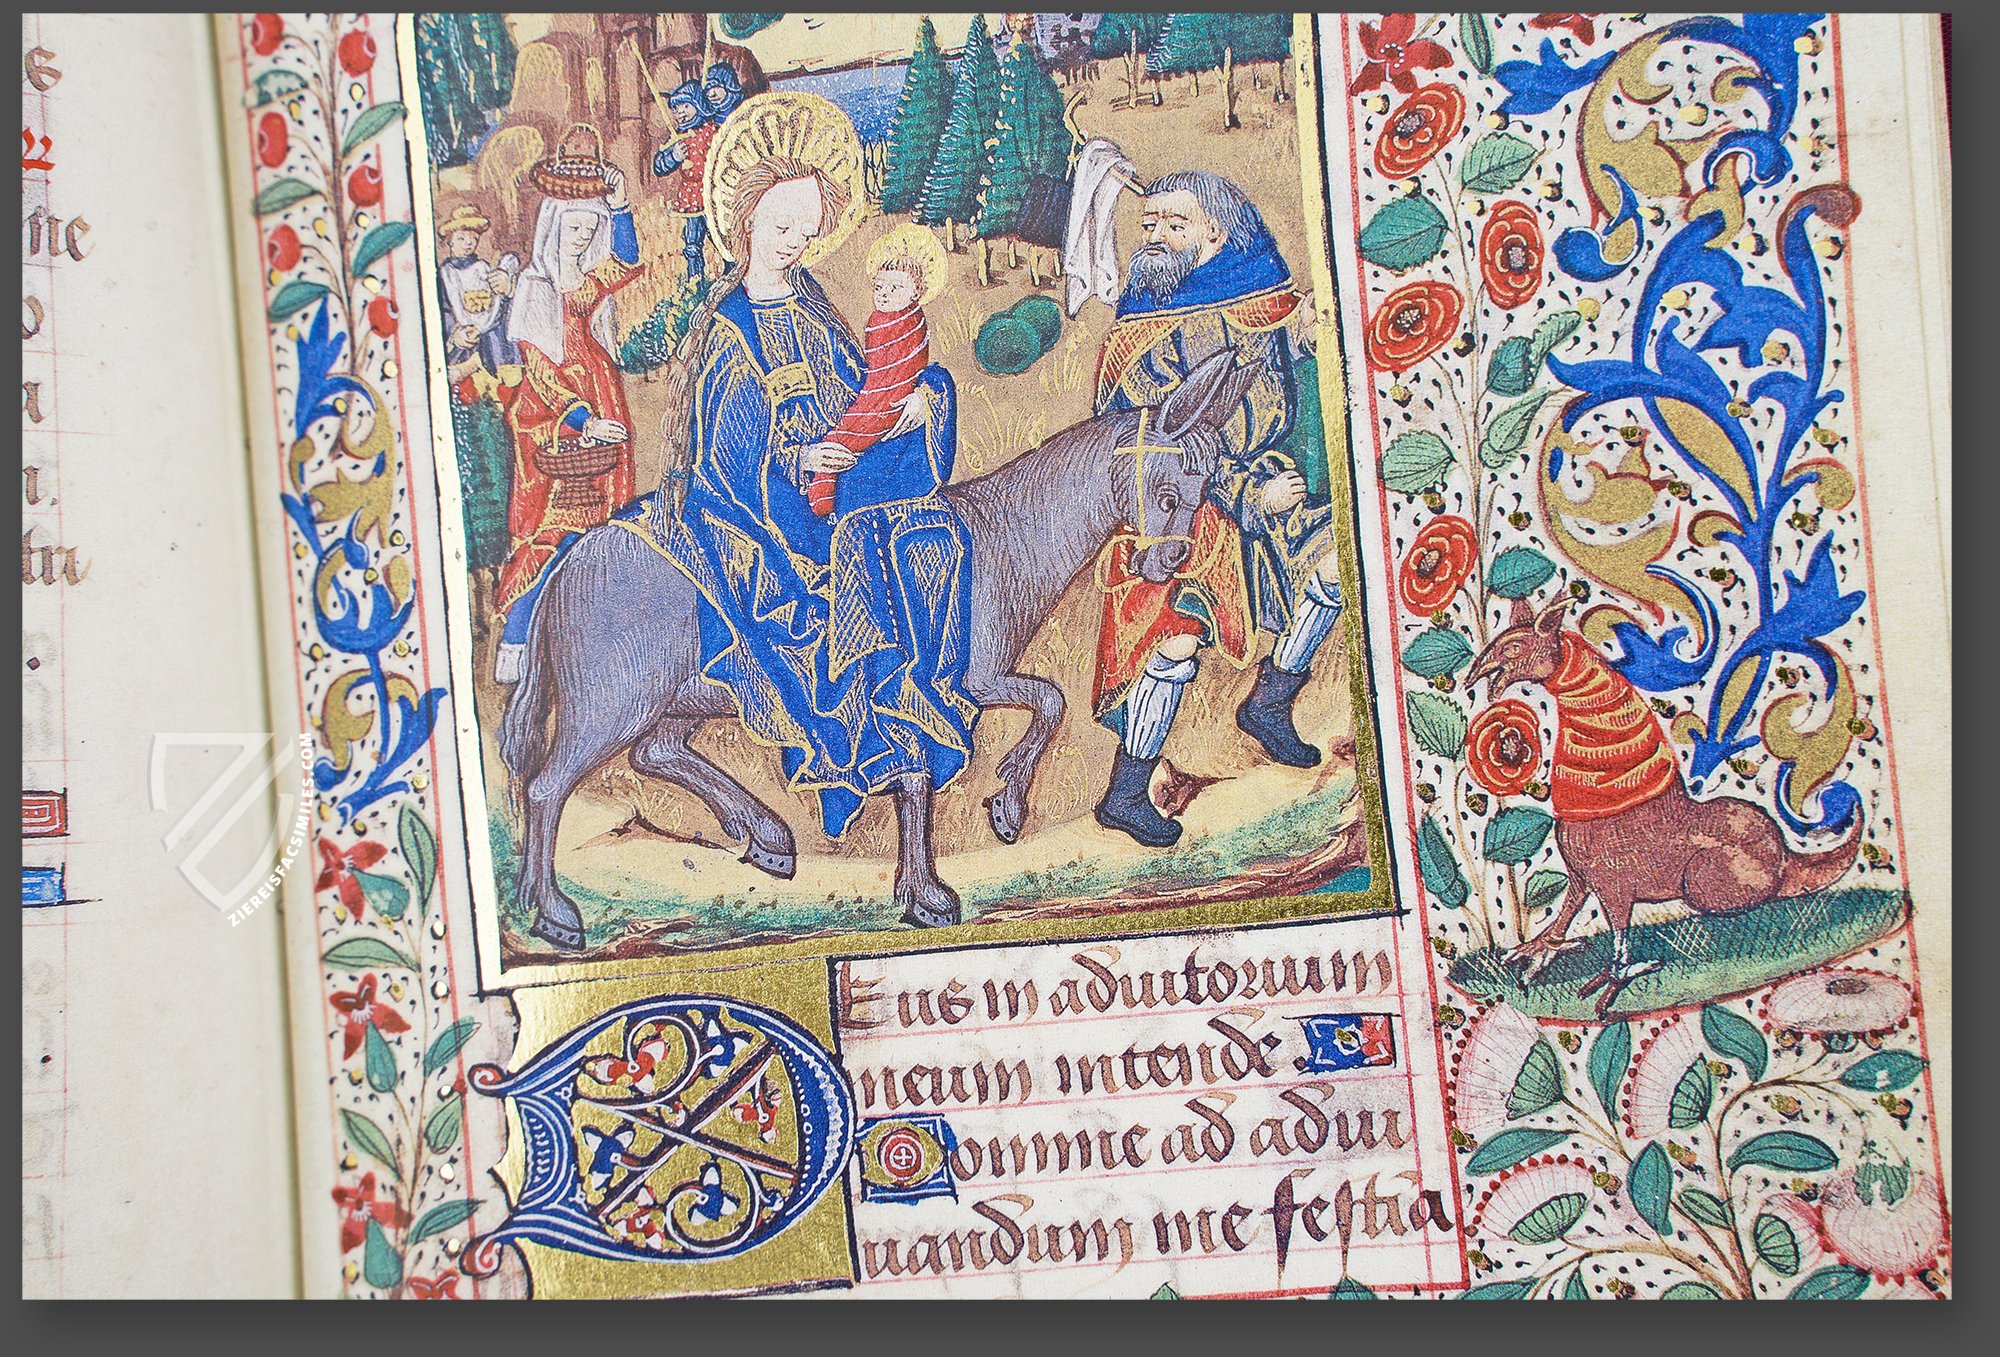 Deus in adiutorium
meum intende.
Domine ad adiu
uandum me festia
ZIEREISFACSIMILES.COM